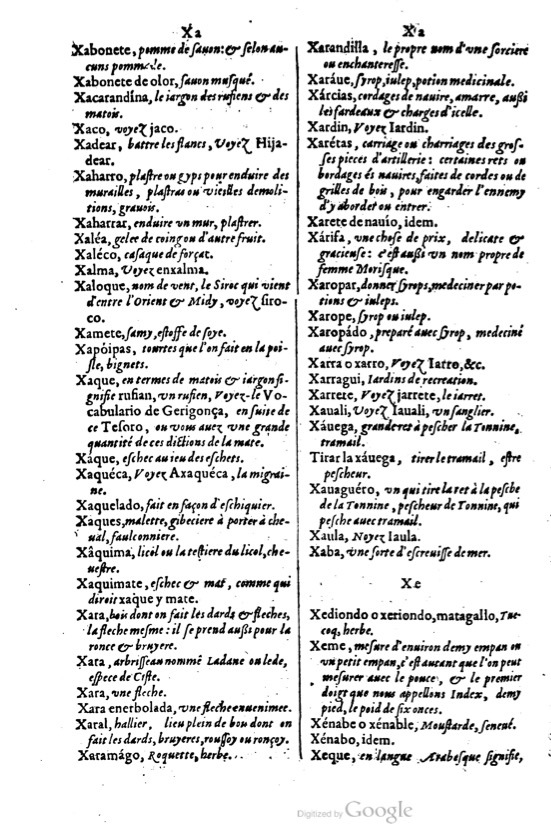 Xa
Xabonete, pomme de sauon: & selon au-
cuns pommade.
Xabonete de olor, sauon musqué.
Xacarandina, le iargon des rufiens & des
matois.
Xaco, voyez jaco.
Xadear, battre les flancs, Voyez Hija-
dear.
Xaharro, plastre ou gyps pour enduire des
murailles, plastras ou vieilles demoli-
tions, grauois.
Xaharrar, enduire vn mur, plastrer.
Xaléa, gelee de coing ou d'autre fruit.
Xaléco, casaque de forçat.
Xalma, Voyez enxalma.
Xaloque, nom de vent, le Siroc qui vient
d'entre l'Orient & Midy, voyez siro-
co.
Xamete, samy, estoffe de soye.
Xapóipas, tourtes que l'on fait en la poi-
sle, bignets.
Xaque, en termes de matois & iargon si-
gnifie rufian, vn rufien, Voyez-le Vo-
cabulario de Gerigonça, en suise de
ce Tesoro, ou vous auez vne grande
quantité de ces dictions de la mate.
Xáque, eschec au ieu des eschets.
Xaquéca, Voyez Axaquéca, la migrai-
ne.
Xaquelado, fait en façon d'eschiquier.
Xaques, malette, gibeciere à porter à che-
ual, faulconniere.
Xâquima, licol ou la testiere du licol, che-
uestre.
Xaquimate, eschec & mat, comme qui
diroit xaque y mate.
Xara, bois dont on fait les dards & fleches,
la fleche mesme: il se prend aussi pour la
ronce & bruyere.
Xara, arbrisseau nommé Ladane ou lede,
espece de Ciste.
Xara, vne fleche.
Xara enerbolada, vne fleche enuenimee.
Xaral, hallier, lieu plein de bou dont on
fait les dards, bruyeres, roussoy ou ronçoy.
Xaramágo, Roquette, herbe.
Xa
Xarandilla, le propre nom d'vne sorciere
ou enchanteresse.
Xaráue, syrop, iulep, potion medicinale.
Xárcias, cordages de nauire, amarre, aussi
les fardeaux & charges d'icelle.
Xardin, Voyez Iardin.
Xarétas, carriage ou charriages des gros-
ses pieces d'artillerie: certaines rets ou
bordages és nauires, faites de cordes ou de
grilles de bois, pour engarder l'ennemy
d'y abordet ou entrer.
Xarete de nauio, idem.
Xárifa, vne chose de prix, delicate &
gracieuse: c'est aussi vn nom propre de
femme Morisque.
Xaropar, donner syrops, medeciner par po-
tions & iuleps.
Xarope, syrop ou iulep.
Xaropádo, preparé auec syrop, medeciné
auec syrop.
Xarra o xarro, Voyez Iarro, &c.
Xarragui, Iardins de recreation.
Xarrete, Voyez jarrete, le iarret.
Xauali, Voyez Iauali, vn sanglier.
Xáuega, grand rets à pescher la Tonnine,
tramail.
Tirar la xáuega, tirer le tramail, estre
pescheur.
Xauaguéro, vn qui tire la ret à la pesche
de la Tonnine, pescheur de Tonnine, qui
pesche auec tramail.
Xaula, Noyez Iaula.
Xaba, vne sorte d'escreuisse de mer.
Xe
Xediondo o xeriondo, matagallo, Tur-
coq, herbe.
Xeme, mesure d'enuiron demy empan ou
vn petit empan, c'est autant que l'on peut
mesurer auec le pouce, & le premier
doigt que nous appellons Index, demy
pied, le poid de six onces.
Xénabe o xénable, Moustarde, seneué.
Xénabo, idem.
Xeque, en langue Arabesque signifie,
Digitized by Google